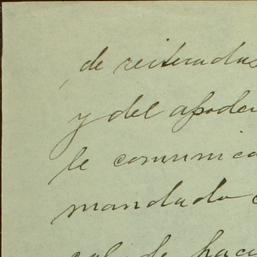 de reiteradas
y del apoder
le comunica
mandado
cal de haci